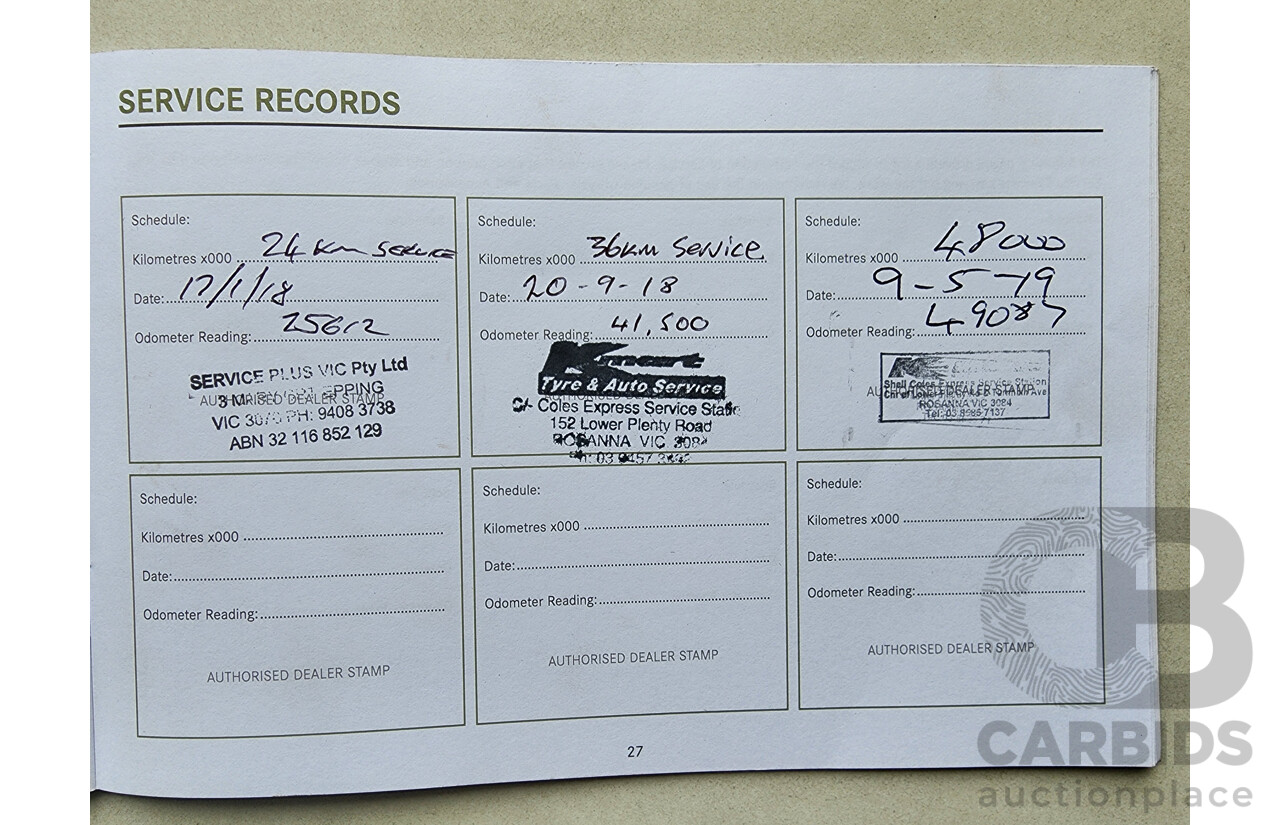 SERVICE RECORDS
Schedule:
Kilometres x000 24 Km Service
Date: 17/1/18
Odometer Reading: 25612
SERVICE PLUS VIC Pty Ltd
AUTHORISED DEALER STAMP
EPPING
VIC PH: 9408 3738
ABN 32 116 852 129
Schedule:
Kilometres x000 36Km Service
Date: 20-9-18
Odometer Reading: 41,500
Kmart
Tyre & Auto Service
C/- Coles Express Service Static
152 Lower Plenty Road
ROSANNA VIC 3084
Schedule:
Kilometres x000 48000
Date: 9-5-19
Odometer Reading: 49087
Shell Coles Express Service Station
AUTHORISED DEALER STAMP
ROSANNA VIC 3084
Tel: 03
Schedule:
Kilometres x000
Date:
Odometer Reading:
AUTHORISED DEALER STAMP
Schedule:
Kilometres x000
Date:
Odometer Reading:
AUTHORISED DEALER STAMP
Schedule:
Kilometres x000
Date:
Odometer Reading:
AUTHORISED DEALER STAMP
27
CB
CARBIDS
auctionplace